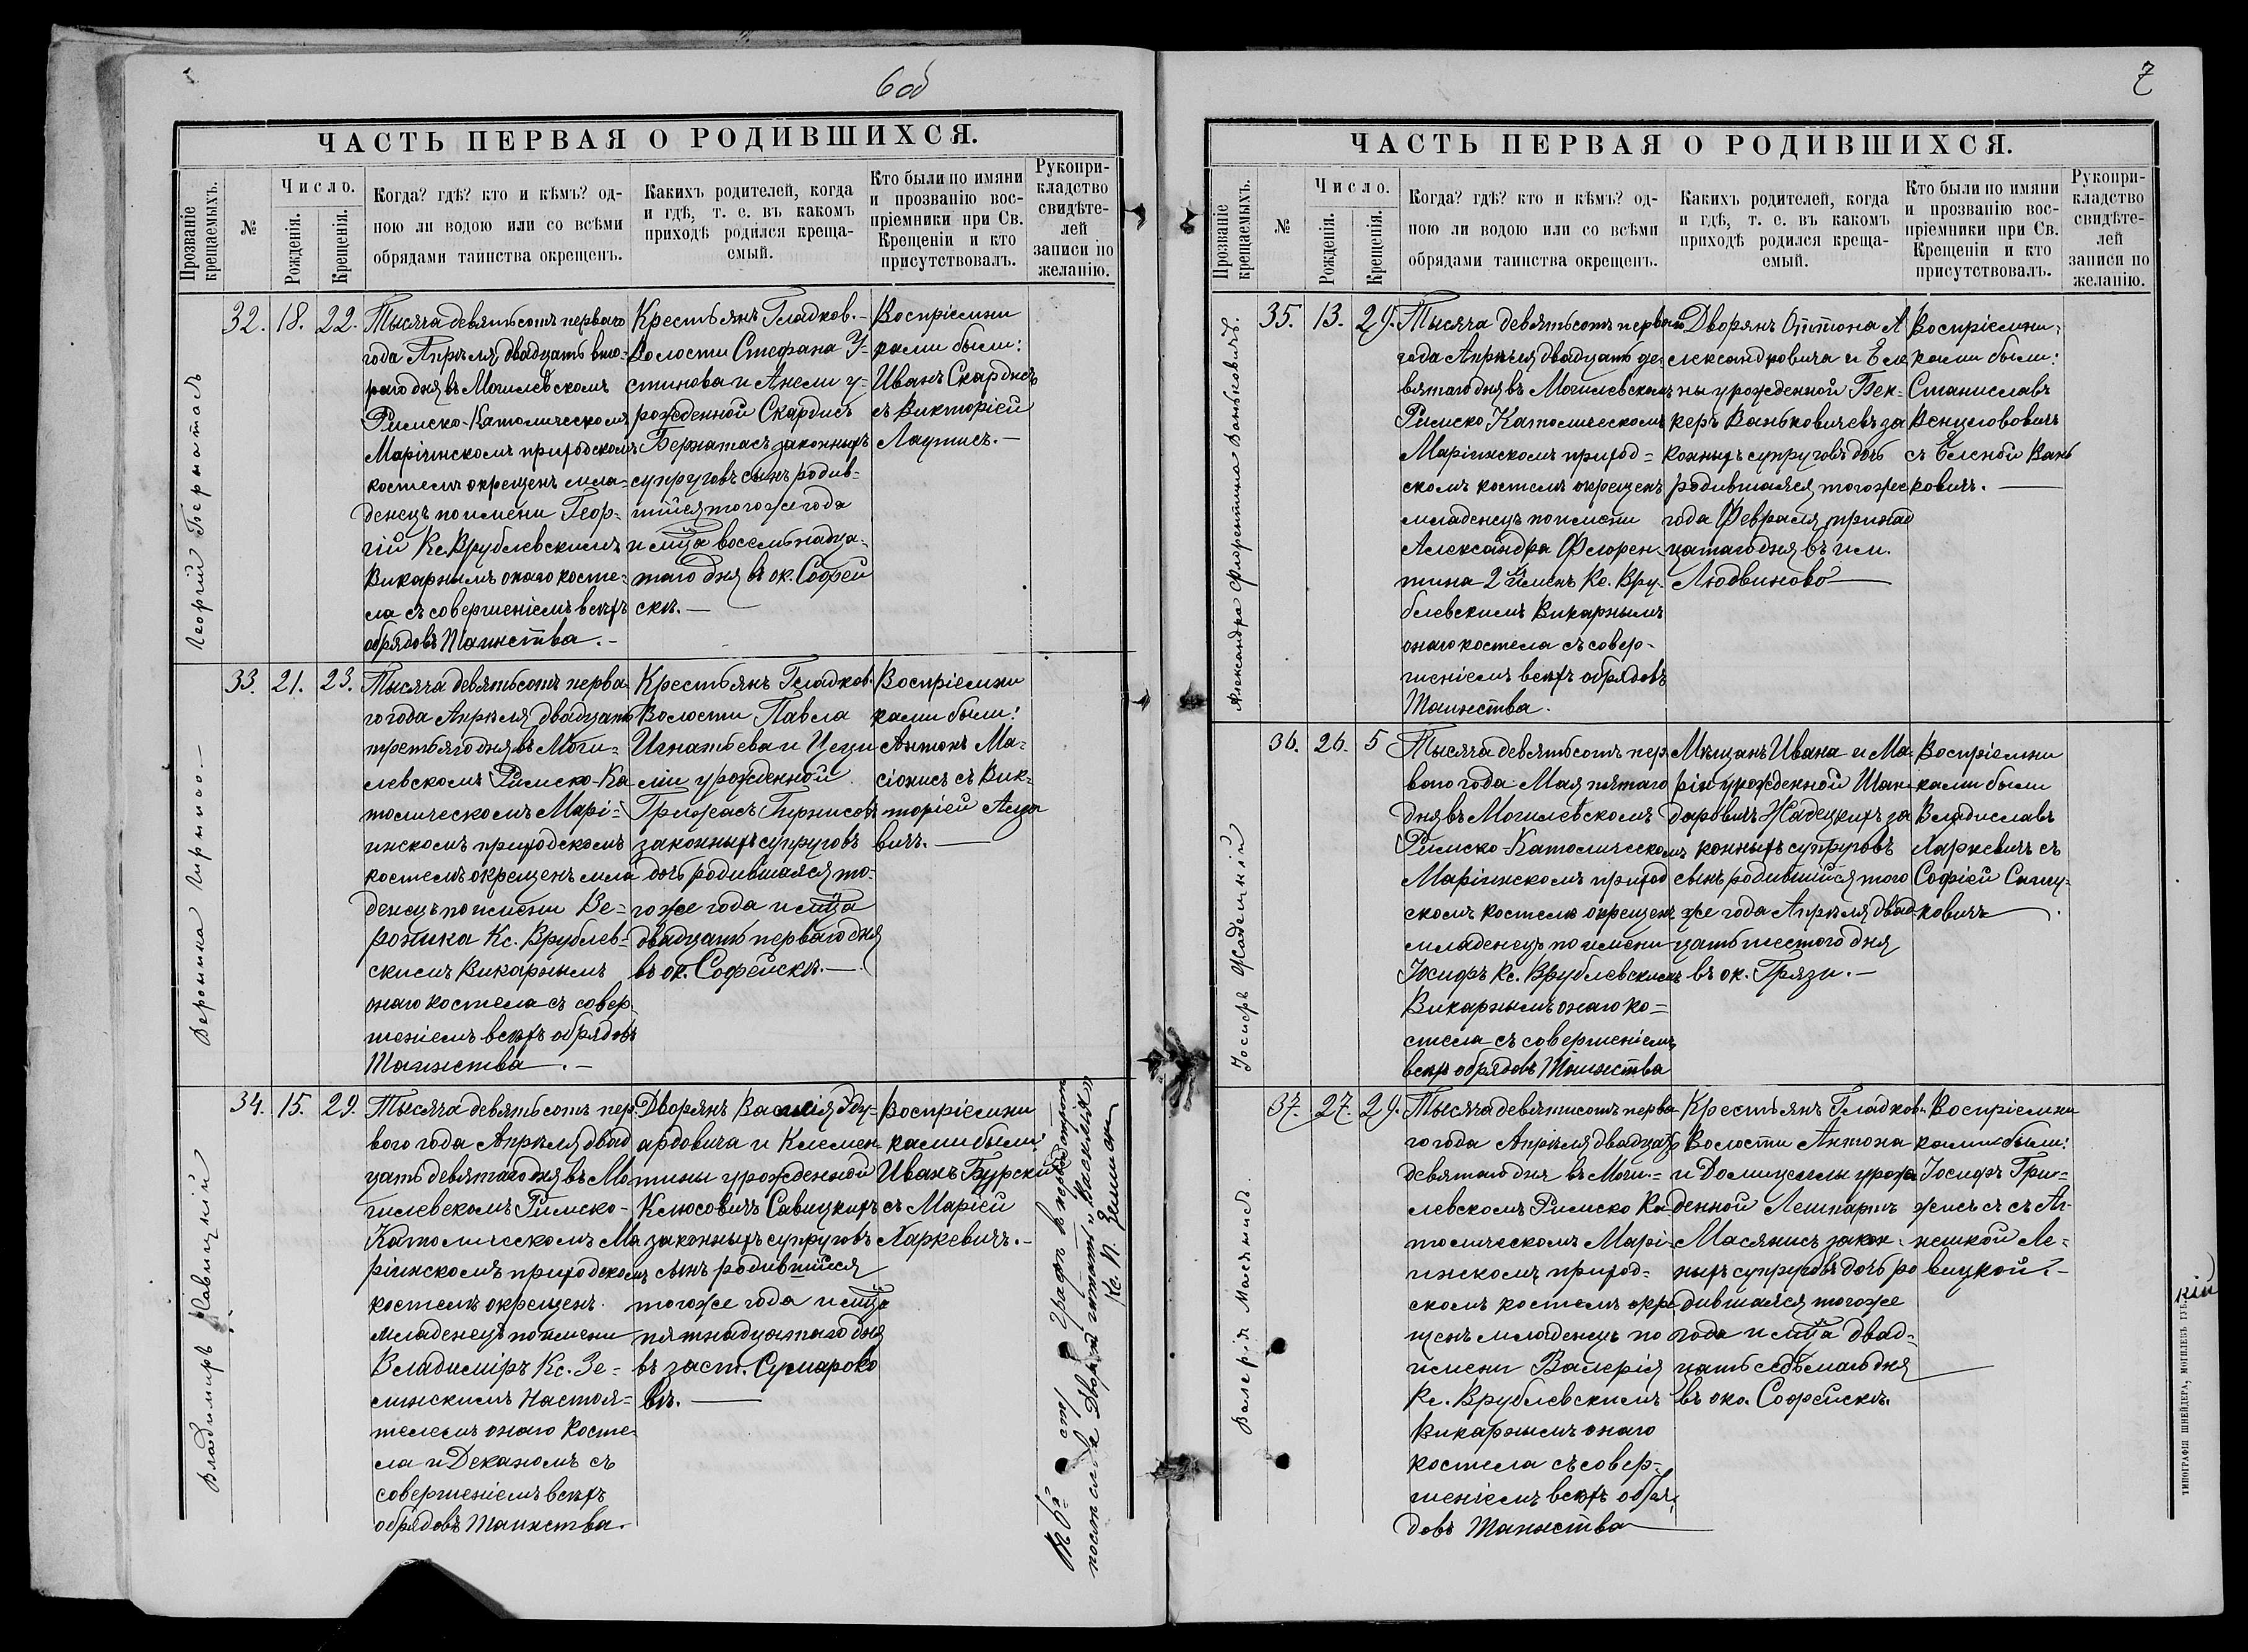 6 об
ЧАСТЬ ПЕРВАЯ О РОДИВШИХСЯ.
Прозваніе крещаемыхъ.
№
Число.
Рожденія.
Крещенія.
Когда? гдѣ? кто и кѣмъ? од-
ною ли водою или со всѣми
обрядами таинства окрещенъ.
Какихъ родителей, когда
и гдѣ, т. е. въ какомъ
приходѣ родился креща-
емый.
Кто были по имяни
и прозванію вос-
пріемники при Св.
Крещеніи и кто
присутствовалъ.
Рукопри-
кладство
свидѣте-
лей
записи по
желанію.
Георгій Бернотасъ
32.
18.
22.
Тысяча девятьсотъ перваго
года Апрѣля двадцать вто-
раго дня въ Могилевскомъ
Римско-Католическомъ
Маріинскомъ приходскомъ
костелѣ окрещенъ мла-
денецъ по имени Геор-
гій Кс. Врублевскимъ
Викарнымъ онаго косте-
ла съ совершеніемъ всѣхъ
обрядовъ Таинства.-
Крестьянъ Гладков.-
Волости Стефана У-
стинова и Анели у-
рожденной Скардисъ
Бернатасъ законныхъ
супруговъ сынъ родив-
шійся того же года
и мца восемьнадца-
таго дня въ ок. Софей
скѣ.-
Воспріемни
ками были:
Иванъ Скардисъ
съ Викторіей
Лаутисъ.-
33.
21.
23.
Тысяча девятьсотъ перва-
го года Апрѣля двадцать
третьяго дня въ Моги-
левскомъ Римско-Ка
толическомъ Марі-
инскомъ приходскомъ
костелѣ окрещенъ мла
денецъ по имени Ве-
роника Кс. Врублев-
скимъ Викарнымъ
онаго костела съ совер
шеніемъ всѣхъ обрядовъ
Таинства.-
Крестьянъ Гладков.
Волости Павла
Игнатьева и Цеци
ліи урожденной
законныхъ супруговъ
дочь родившаяся то-
го же года и мца
двадцать перваго дня
въ ок. Софейскѣ.-
Воспріемни
ками были:
Антонъ Ма-
сіонисъ съ Вик-
торіей Аца
вичъ.-
Владимиръ Савицкій
34.
15.
29.
Тысяча девятьсотъ пер-
ваго года Апрѣля двад
цать девятаго дня въ Мо
гилевскомъ Римско-
Католическомъ Ма
ріинскомъ приходскомъ
костелѣ окрещенъ
младенецъ по имени
Владиміръ Кс. Зе-
линскимъ Настоя-
телемъ онаго косте-
ла и Деканомъ съ
совершеніемъ всѣхъ
обрядовъ таинства.
Дворянъ Василія Эду-
ардовича и Клемен-
тины урожденной
Клюсовичъ Савицкихъ
законныхъ супруговъ
сынъ родившійся
того же года и мца
пятнадцатаго дня
въ заст. Сумароко
вѣ.-
Воспріемни
ками были:
Иванъ Бурскій
съ Маріей
Харкевичъ.-
послѣ слова Дворянъ читать: „Василія"
7
ЧАСТЬ ПЕРВАЯ О РОДИВШИХСЯ.
Прозваніе крещаемыхъ.
№
Число.
Рожденія.
Крещенія.
Когда? гдѣ? кто и кѣмъ? од-
ною ли водою или со всѣми
обрядами таинства окрещенъ.
Какихъ родителей, когда
и гдѣ, т. е. въ какомъ
приходѣ родился креща-
емый.
Кто были по имяни
и прозванію вос-
пріемники при Св.
Крещеніи и кто
присутствовалъ.
Рукопри-
кладство
свидѣте-
лей
записи по
желанію.
Александра Флорентина Ваньковичъ.
35.
13.
29.
Тысяча девятьсотъ перваго
года Апрѣля двадцать де-
вятаго дня въ Могилевскомъ
Римско Католическомъ
Маріинскомъ приход-
скомъ костелѣ окрещенъ
младенецъ по имени
Александра Флорен-
тина 2 именъ Кс. Вру-
блевскимъ Викарнымъ
онаго костела съ совер-
шеніемъ всѣхъ обрядовъ
Таинства.
Дворянъ Антона А
лександровича и Еле
ны урожденной Бен-
керъ Ваньковичевъ за
конныхъ супруговъ дочь
родившаяся того же
года Февраля тринад
цатаго дня въ им.
Людвиново
Воспріемни-
ками были:
Станиславъ
Венцлововичъ
съ Еленой Вань
ковичъ.-
Іосифъ Жадецкій
36.
26.
5
Тысяча девятьсотъ пер-
ваго года Мая пятаго
дня въ Могилевскомъ
Римско-Католическомъ
Маріинскомъ приход
скомъ костелѣ окрещенъ
младенецъ по имени
Іосифъ Кс. Врублевскимъ
Викарнымъ онаго ко-
стела съ совершеніемъ
всѣхъ обрядовъ Таинства
Мѣщанъ Ивана и Ма-
ріи урожденной Шан-
даровичъ Жадецкихъ за
конныхъ супруговъ
сынъ родившійся того
же года Апрѣля двад-
цать шестого дня
въ ок. Грязи.-
Воспріемни
ками были
Владиславъ
Харкевичъ съ
Софіей
ковичъ
Валерія Масянисъ.
37.
27.
29.
Тысяча девятисотъ перва-
го года Апрѣля двадцать
девятаго дня въ Моги-
левскомъ Римско Ка
толическомъ Марі-
инскомъ приход-
скомъ костелѣ окре
щенъ младенецъ по
имени Валерія
Кс. Врублевскимъ
Викарнымъ онаго
костела съ совер-
шеніемъ всѣхъ обря-
довъ Таинства
Крестьянъ Гладков.
Волости Антона
и Домицеллы урож
денной Лешпартъ
Масянисъ закон-
ныхъ супруговъ дочь ро
дившаяся того же
года и мца двад-
цать седьмаго дня
въ око. Софейскѣ.
Воспріемни
ками были:
Іосифъ Гри-
жисъ съ Аг-
нешкой Ле-
вицкой.-
ТИПОГРАФІЯ ШНЕЙДЕРА, МОГИЛЕВЪ ГУБ.
кій